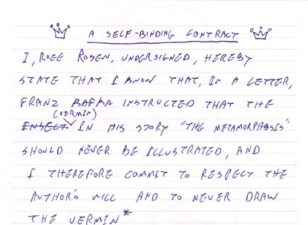 A SELF-BINDING CONTRACT
I, ROEE ROSEN, UNDERSIGNED, HEREBY
STATE THAT I KNOW THAT, IN A LETTER,
FRANZ KAFKA INSTRUCTED THAT THE
(VERMIN)
INSECT IN HIS STORY "THE METAMORPHOSIS"
SHOULD NEVER BE ILLUSTRATED, AND
I THEREFORE COMMIT TO RESPECT THE
AUTHOR'S WILL AND TO NEVER DRAW
THE VERMIN*